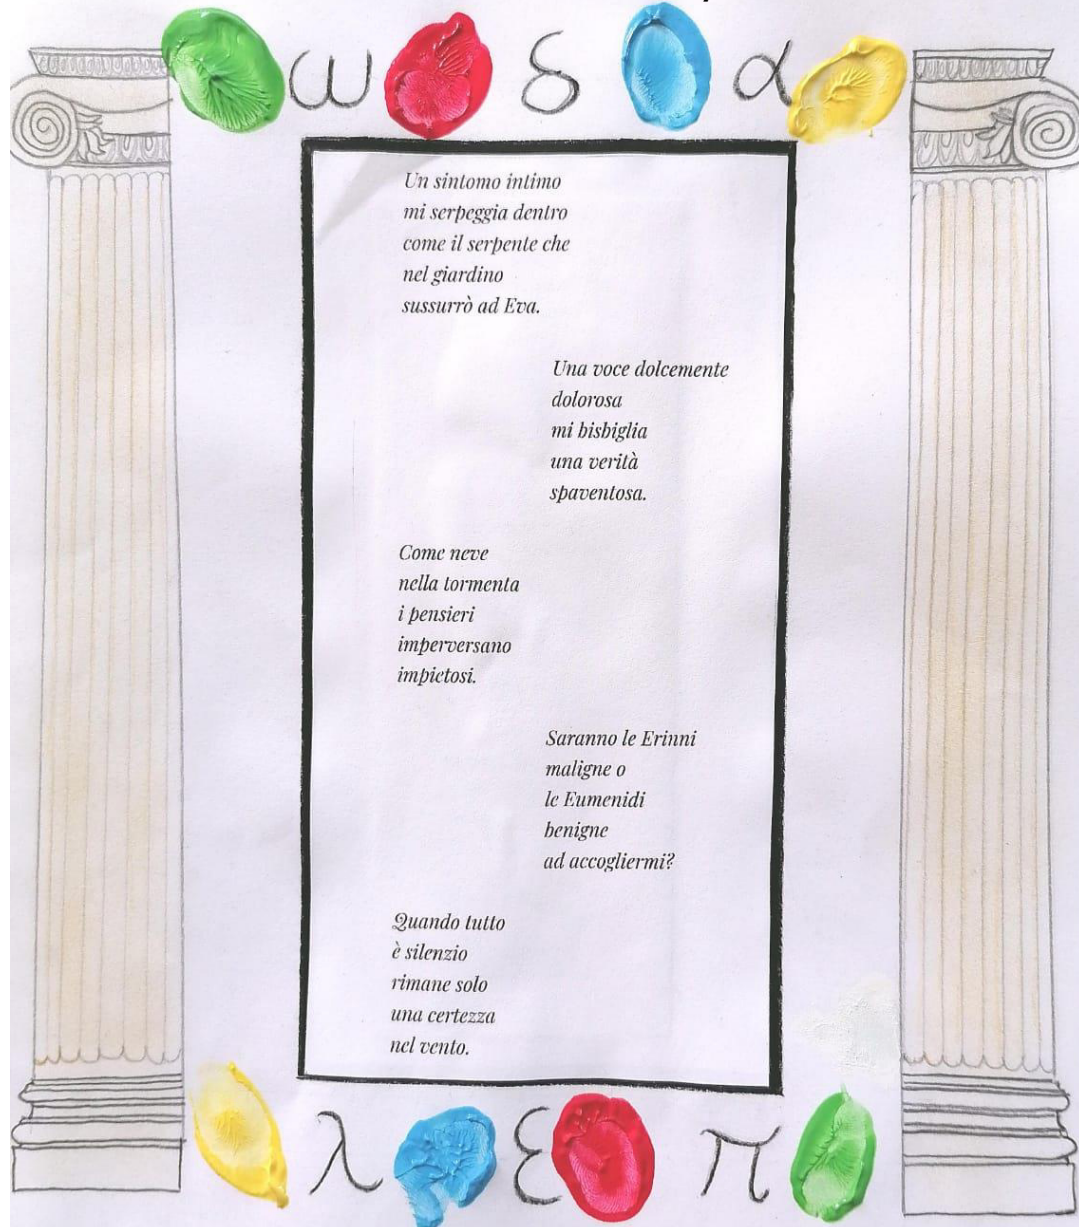 ω δ α
Un sintomo intimo
mi serpeggia dentro
come il serpente che
nel giardino
sussurrò ad Eva.
Una voce dolcemente
dolorosa
mi bisbiglia
una verità
spaventosa.
Come neve
nella tormenta
i pensieri
imperversano
impietosi.
Saranno le Erinni
maligne o
le Eumenidi
benigne
ad accogliermi?
Quando tutto
è silenzio
rimane solo
una certezza
nel vento.
λ ε π